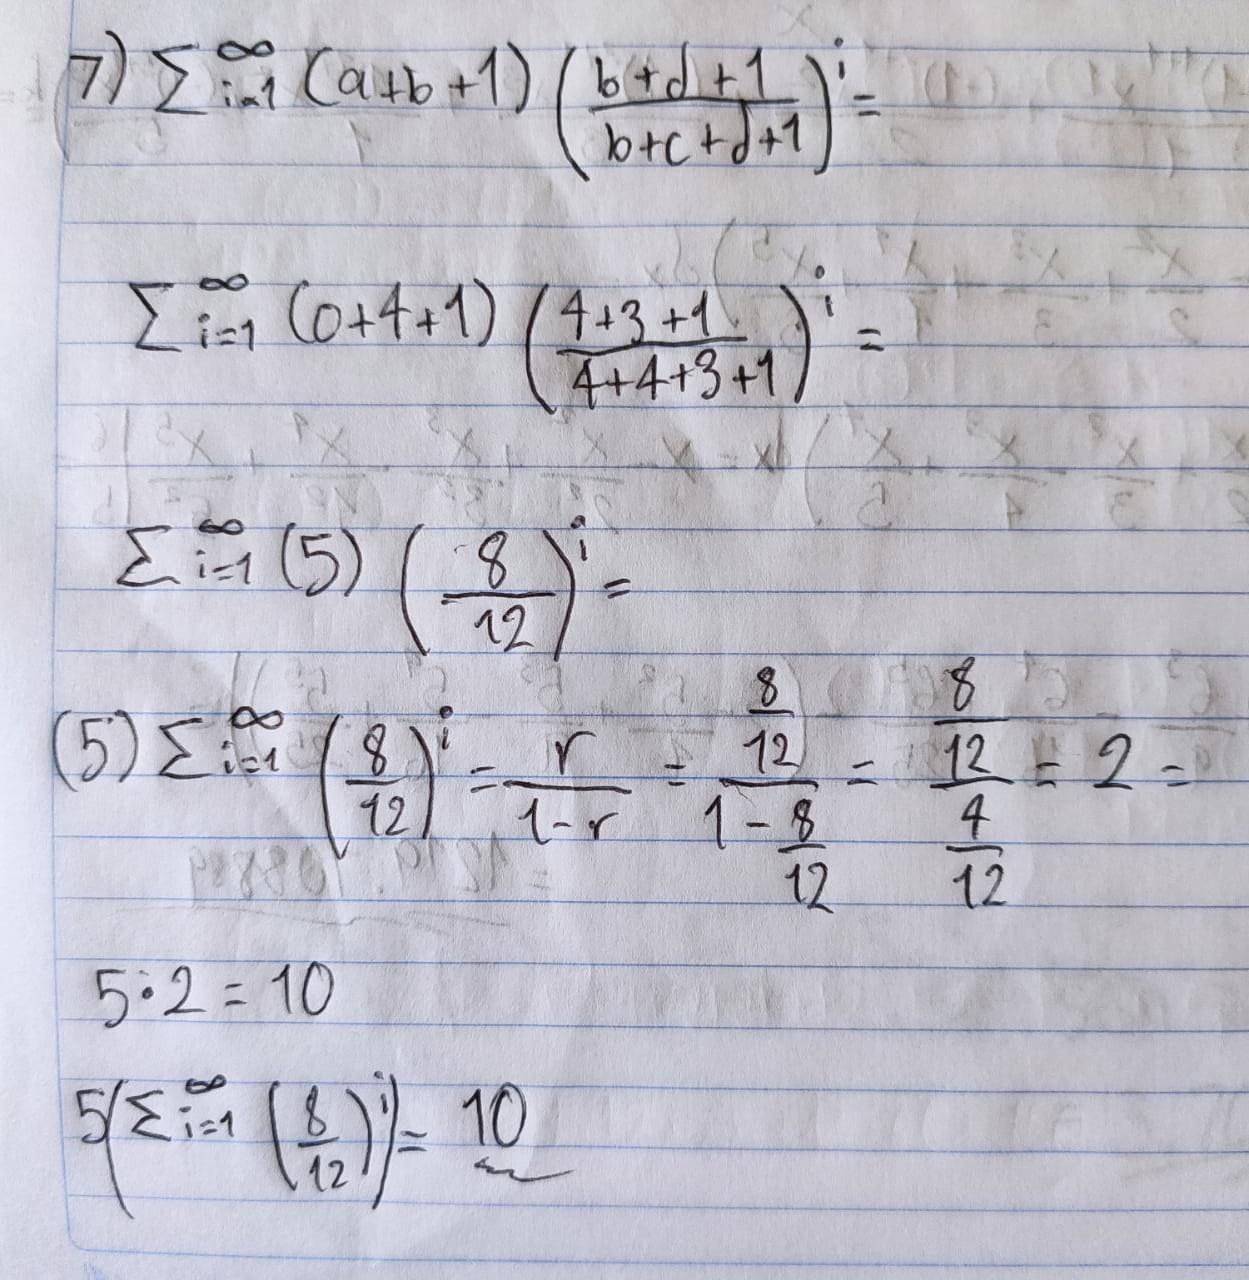 7) Σ ∞ i=1 (a+b+1) ( b+d+1 / b+c+d+1 )^i =
Σ ∞ i=1 (0+4+1) ( 4+3+1 / 4+4+3+1 )^i =
Σ ∞ i=1 (5) ( 8 / 12 )^i =
(5) Σ ∞ i=1 ( 8 / 12 )^i = r / 1-r = 8/12 / 1 - 8/12 = 8/12 / 4/12 = 2 =
5·2 = 10
5(Σ ∞ i=1 ( 8 / 12 )^i) = 10